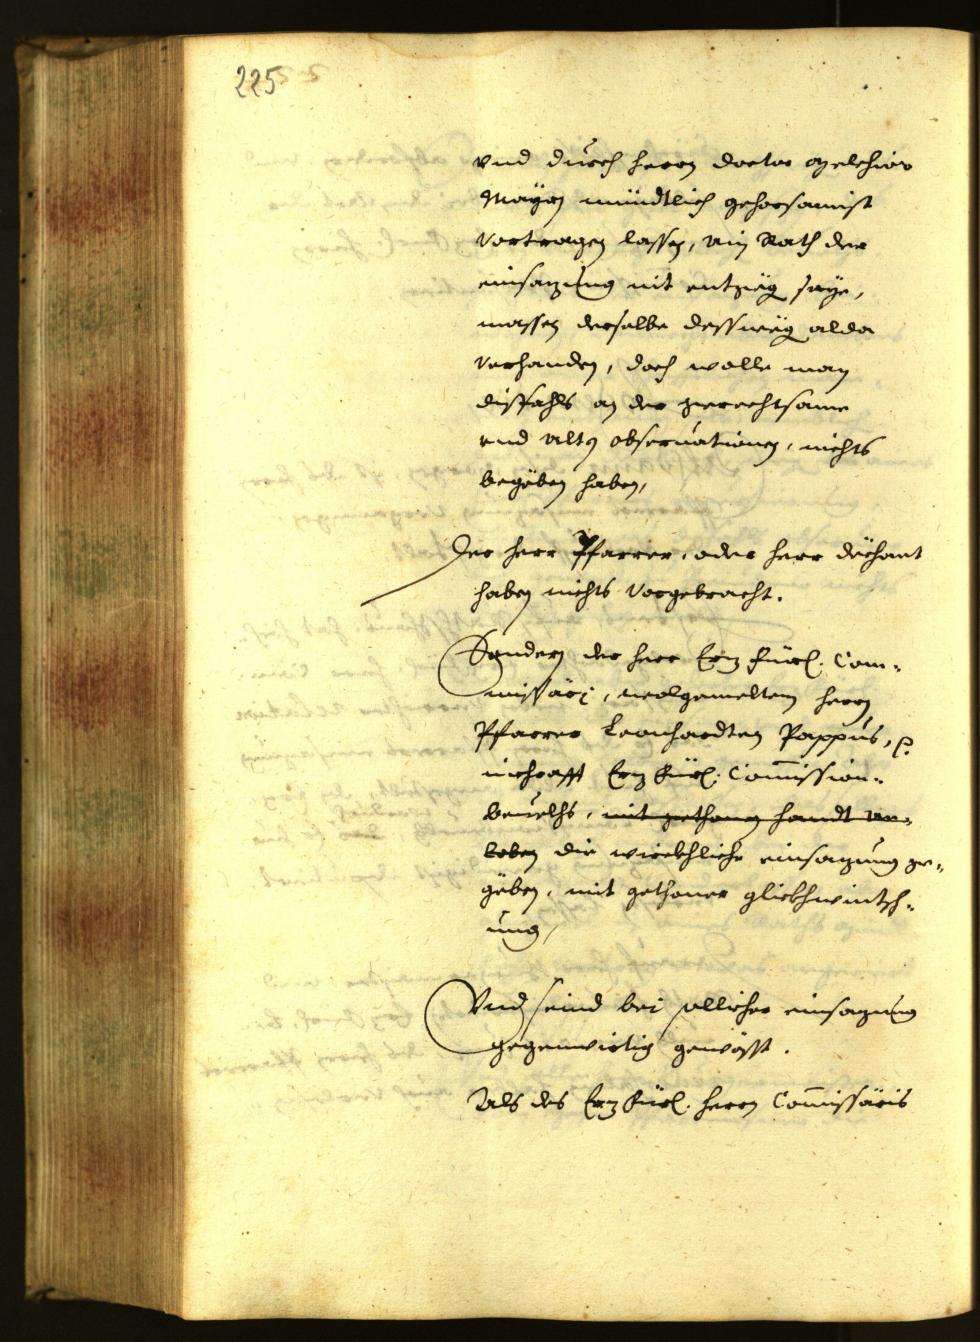 225
vnd durch herrn doctor Melchior
Mayrn mündtlich gehorsamist
Vortragen lassen, ain Rath der
einsazung nit entgeg seye,
massen derselbe desswēg alda
verhanden, doch wolle man
dissfahls an der gerechtsame
vnd alten obseruationen, nichts
begeben haben,
Der herr Pfarrer, oder herr dechant
haben nichts Vorgebracht.
Sondern der herr Erz Fürl: Com=
missāri, wolgemeltem herrn
Pfarrer Leonhardten Pappus,
incrafft Erz Fürl: Com̄ission=
beuelchs, mit gethaner handt an=
loben die würckhliche einsazung ge=
geben, mit gethaner glickhwintsch=
ung,
Vnd seind bei sollicher einsazung
gegenwirtig gewösst.
Als des Erz Fürl: herrn Com̄issāris